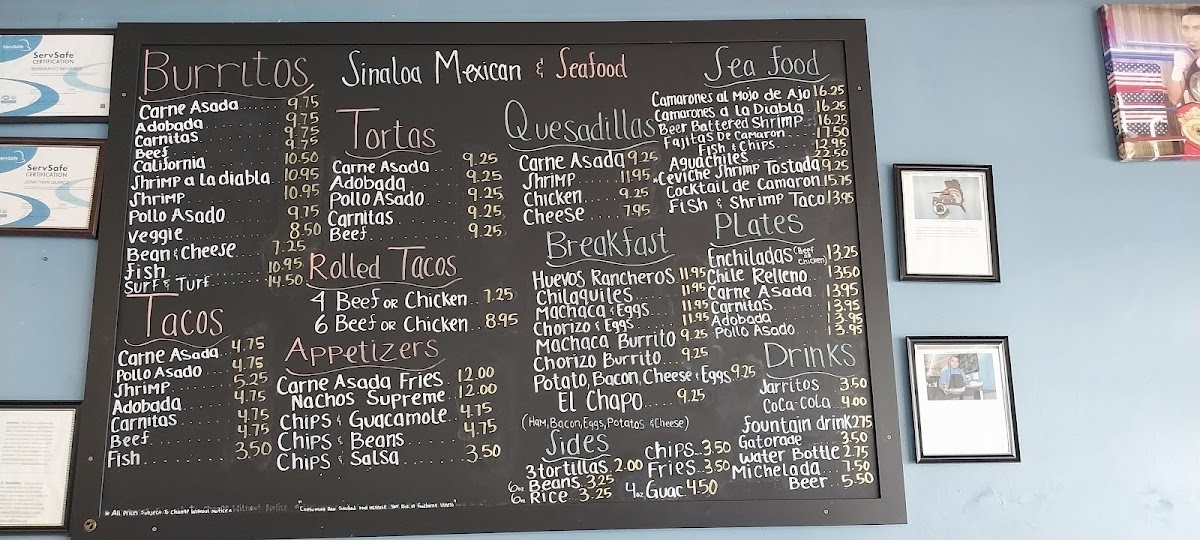 ServSafe
CERTIFICATION
ServSafe
CERTIFICATION
Sinaloa Mexican & Seafood
Burritos
Carne Asada 9.75
Adobada 9.75
Carnitas 9.75
Beef 9.75
California 10.50
Shrimp a la diabla 10.95
Shrimp 10.95
Pollo Asado 9.75
Veggie 8.50
Bean & Cheese 7.25
Fish 10.95
Surf & Turf 14.50
Tacos
Carne Asada 4.75
Pollo Asado 4.75
Shrimp 5.25
Adobada 4.75
Carnitas 4.75
Beef 4.75
Fish 3.50
Tortas
Carne Asada 9.25
Adobada 9.25
Pollo Asado 9.25
Carnitas 9.25
Beef 9.25
Rolled Tacos
4 Beef or Chicken 7.25
6 Beef or Chicken 8.95
Appetizers
Carne Asada Fries 12.00
Nachos Supreme 12.00
Chips & Guacamole 4.75
Chips & Beans 4.75
Chips & Salsa 3.50
Quesadillas
Carne Asada 9.25
Shrimp 11.95
Chicken 9.25
Cheese 7.95
Breakfast
Huevos Rancheros 11.95
Chilaquiles 11.95
Machaca & Eggs 11.95
Chorizo & Eggs 11.95
Machaca Burrito 9.25
Chorizo Burrito 9.25
Potato, Bacon, Cheese & Eggs 9.25
El Chapo 9.25
(Ham, Bacon, Eggs, Potatos & Cheese)
Sides
3 tortillas 2.00
6oz Beans 3.25
6oz Rice 3.25
chips 3.50
Fries 3.50
4oz Guac 4.50
Sea food
Camarones al Mojo de Ajo 16.25
Camarones a la Diabla 16.25
Beer Battered Shrimp 16.25
Fajitas De Camaron 17.50
Fish & Chips 12.95
Aguachiles 23.50
Ceviche Shrimp Tostada 9.25
Cocktail de Camaron 15.75
Fish & Shrimp Taco 13.95
Plates
Enchiladas (Beef or Chicken) 13.25
Chile Relleno 13.50
Carne Asada 13.95
Carnitas 13.95
Adobada 13.95
Pollo Asado 13.95
Drinks
Jarritos 3.50
Coca-Cola 4.00
fountain drink 2.75
Gatorade 3.50
Water Bottle 2.75
Michelada 7.50
Beer 5.50
All Prices Subject To Change Without Notice